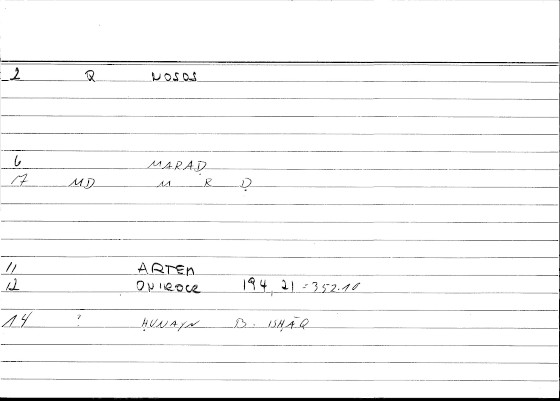 2 Q NOSOS
6 MARAḌ
17 MD M R Ḍ
11 ARTEM
12 ONIROCR 194, 21 = 352.10
14 : ḤUNAYN B. ISḤĀQ